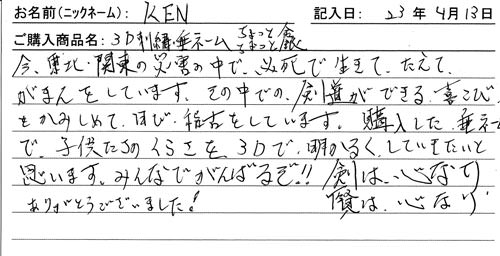 お名前(ニックネーム): KEN 記入日: 23年4月13日
ご購入商品名: 3D刺繍・垂ネーム ちょっと ちょっと
今、東北・関東の災害の中で、必死で生きて、たえて、
がまんをしています。その中での、剣道ができる喜こび
をかみしめて、日び、稽古をしています。購入した、垂ネーム
で、子供たちのくらさを3Dで、明かるく、していきたいと
思います。みんなでがんばるぞ!! 剣は、心なり
ありがとうございました! は、心なり